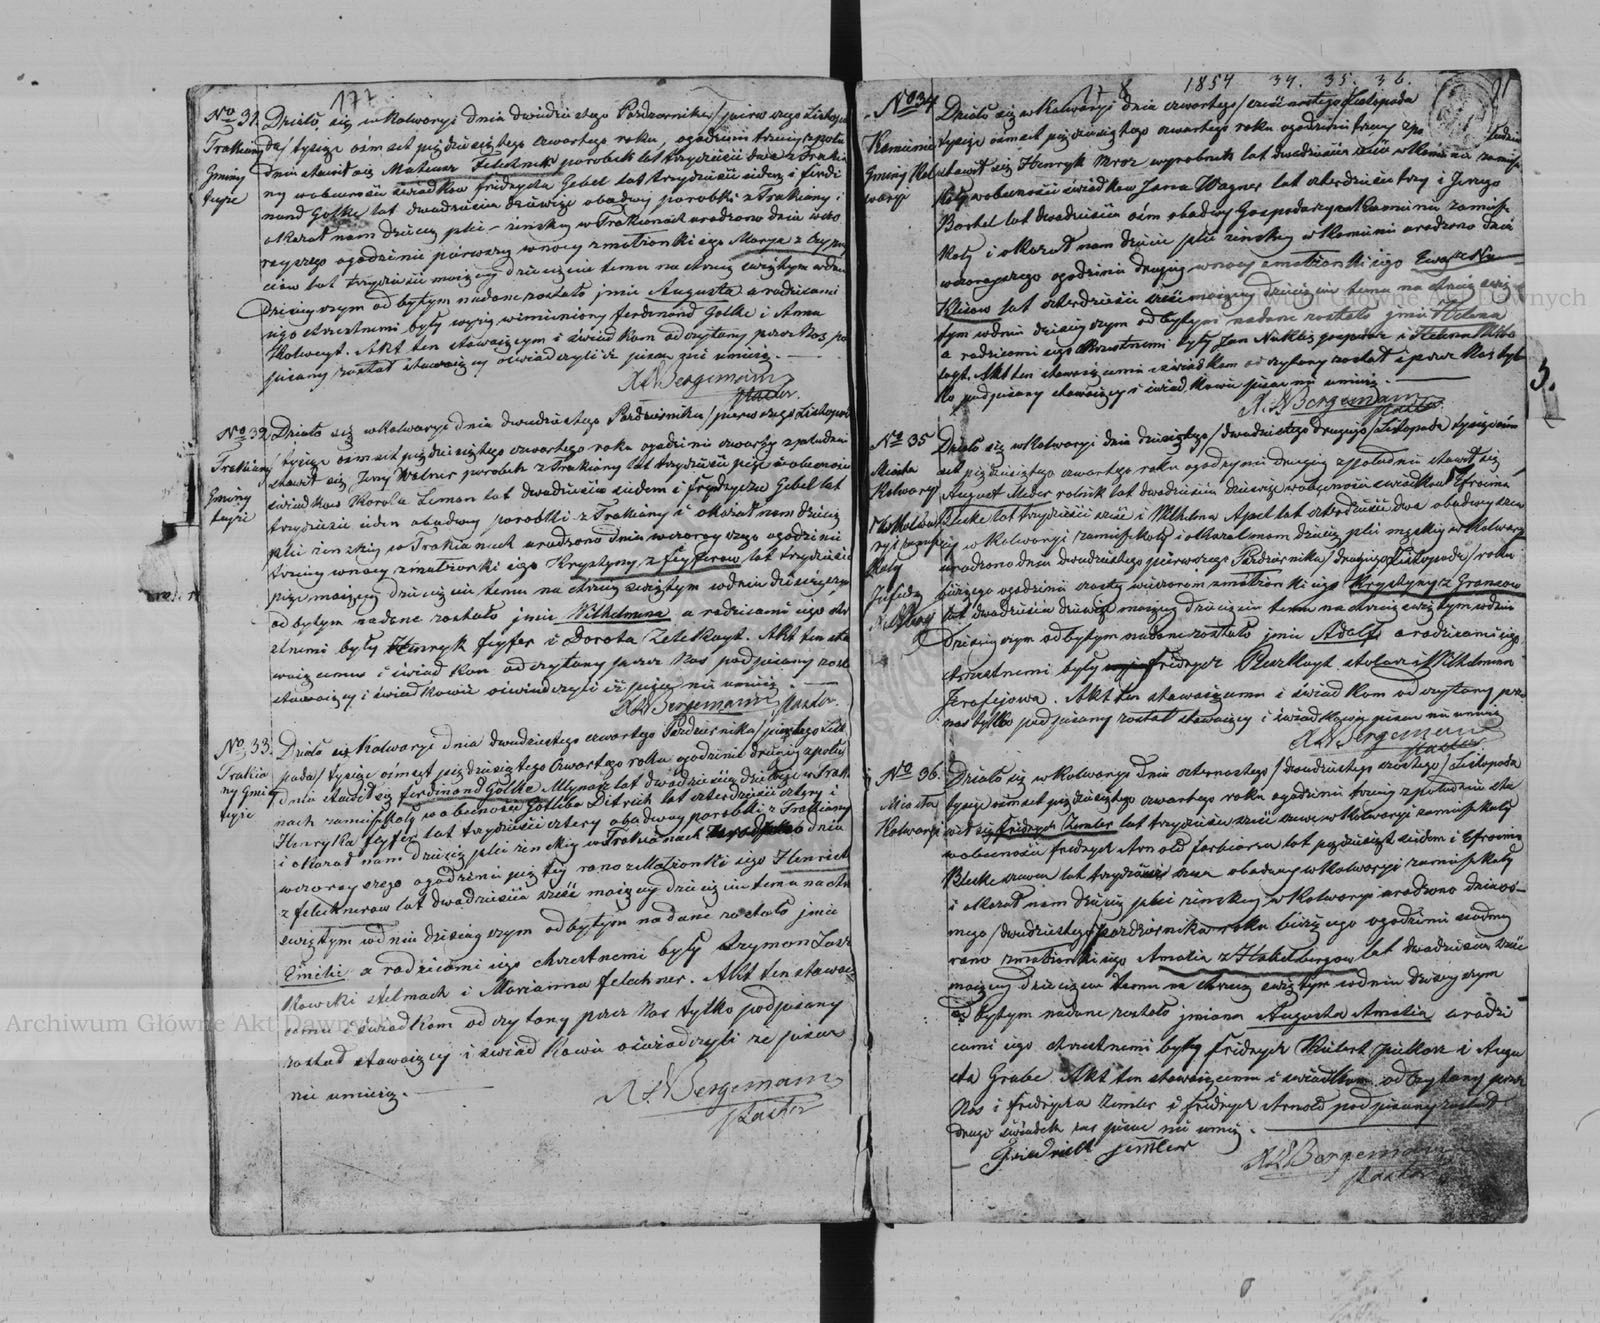 177
No 31.
Trakiany
Gminy
tejże
Działo się w Kalwaryi dnia dwudziestego Października / pierwszego Listopa
da / tysiąc ośmset pięćdziesiątego czwartego roku, o godzinie trzeciej z połu
dnia stawił się Mateusz Felchner parobek lat trzydzieści dwa z Trakia
ny w obecności świadków Frideryka Gebel lat trzydzieści siedem i Ferdi
nand Golke lat dwadzieścia dziewięć obadwaj parobki z Trakiany i
okazał nam dziecię płci żeńskiej w Trakianach urodzone dnia wczo
rayszego o godzinie pierwszej w nocy z małżonki jego Marya z
lat trzydzieści mającej dziecięciu temu na chrzcie świętym w dniu
dzisiejszym odbytym nadane zostało imię Augusta a rodzicami
jego chrzestnemi byli wyżej wymieniony Ferdinand Golke i Anna
Akt ten stawającym i świadkom odczytany przez Nas po
pisany został stawający oświadczyli iż pisać nie umieją.
Bergemann
Pastor.
No 32
Trakiany
Gminy
tejże
Działo się w Kalwaryi dnia dwudziestego Października / pierwszego Listopada
/ tysiąc ośmset pięćdziesiątego czwartego roku o godzinie czwartej z południa
stawił się Jerzy Wolner parobek z Trakiany lat trzydzieści pięć w obecności
świadków Karola Liman lat dwadzieścia siedem i Fryderyka Gebel lat
trzydzieści siedem obadwaj parobki z Trakiany i okazał nam dziecię
płci żeńskiej w Trakianach urodzone dnia wczorayszego o godzinie
trzeciej w nocy z małżonki jego Krystyny z Feyferow lat trzydzieści
pięć mającej dziecięciu temu na chrzcie świętym w dniu dzisiejszym
odbytym nadane zostało imię Wilhelmina a rodzicami jego chrze
stnemi byli Henryk Feyfer i Dorota Akt ten sta
wającemu i świadkom odczytany przez Nas podpisany został
stawający i świadkowie oświadczyli iż pisać nie umieją.
Bergemann Pastor.
No 33.
Trakia
ny Gminy
tejże
Działo się Kalwaryi dnia dwudziestego czwartego Października / piątego Listo
pada / tysiąc ośmset pięćdziesiątego czwartego roku o godzinie drugiej z połu
dnia stawił się Ferdinand Golke Młynarz lat dwadzieścia dziewięć w Trakia
nach zamieszkały w obecności Gotliba Ditrich lat czterdzieści cztery i
Henryka Feyfer lat trzydzieści cztery obadwaj parobki z Trakiany
i okazał nam dziecię płci żeńskiej w Trakianach dnia
wczorayszego o godzinie piątej rano z Małżonki jego Henriett
z Felchnerow lat dwadzieścia sześć mającej dziecięciu temu na chr
świętym w dniu dzisiejszym odbytym nadane zostało imię
Emilie a rodzicami jego chrzestnemi byli Szymon
stelmach i Marianna Felchner. Akt ten stawa
cemu i świadkom odczytany przez Nas tylko podpisany
został stawający i świadkowie oświadczyli że pisać
nie umieją.
Bergemann
Pastor
1854 34. 35. 36.
No 34
Kamienie
Gminy Kal
waryi
Działo się w Kalwaryi dnia czwartego / szesnastego Listopada
tysiąc ośmset pięćdziesiątego czwartego roku o godzinie trzeciej z po ludniu
stawił się Henryk Mroz wyrobnik lat dwadzieścia sześć w Kamieniu zamiesz
kały w obecności świadków Jana Wagner lat czterdzieści trzy i Jerzego
Bartel lat dwadzieścia ośm obadwaj Gospodarzy w Kamieniu zamiesz
kały i okazał nam dziecię płci żeńskiej w Kamieniu urodzone dnia
wczorayszego o godzinie drugiej w nocy z małżonki jego Ewa z Na
klisow lat czterdzieści sześć mającej dziecięciu temu na chrzcie świę
tym w dniu dzisiejszym odbytym nadane zostało imię Helena
a rodzicami jego chrzestnemi byli Jan Naklis gospodarz i Helena
Akt ten stawającemu i świadkom odczytany został i przez Nas tyl
ko podpisany stawający i świadkowie pisać nie umieją.
Bergemann
Pastor.
No 35
Miasta
Kalwaryi
Działo się w Kalwaryi dnia dziesiątego / dwudziestego drugiego / Listopada tysiąc ośm
set pięćdziesiątego czwartego roku o godzinie drugiej z południa stawił się
August Meder rolnik lat dwadzieścia dziewięć w obecności świadków Efroima
Bleske lat trzydzieści sześć i Wilhelma Apel lat czterdzieści dwa obadwaj szew
cy w Kalwaryi zamieszkały i okazał nam dziecię płci męskiej w Kalwaryi
urodzone dnia dwudziestego pierwszego Października / drugiego Listopada / roku
bieżącego o godzinie szóstej wieczorem z małżonki jego Krystyny z Gransow
lat dwadzieścia dziewięć mającej dziecięciu temu na chrzcie świętym w dniu
Dzisiejszym odbytym nadane zostało imię Adolf a rodzicami jego
chrzestnemi byli Fridrych stolarz i Wilhelmina
Akt ten stawającemu i świadkom odczytany przez
nas tylko podpisany został stawający i świadkowie pisać nie umieją
Bergemann
Pastor
No 36.
Miasta
Kalwaryi
Działo się w Kalwaryi Dnia czternastego / dwudziestego szóstego / Listopada
tysiąc ośmset pięćdziesiątego czwartego roku o godzinie trzeciej z południa sta
wił się Fridrych Zemler lat trzydzieści sześć szewc w Kalwaryi zamieszkały
w obecności Fridrych Arnold farbiarza lat pięćdziesiąt siedem i Efroima
Bleske szewca lat trzydzieści sześć obadwaj w Kalwaryi zamieszkały
i okazał nam dziecię płci żeńskiej w Kalwaryi urodzone dnia os
mego / dwudziestego / października roku bieżącego o godzinie siódmej
rano z małżonki jego Amalia z Habelbergow lat dwadzieścia sześć
mającej dziecięciu temu na chrzcie świętym w dniu dzisiejszym
odbytym nadane zostało imiona Augusta Amalia a rodzi
cami jego chrzestnemi byli Fridrych piekarz i Augu
sta Grabe. Akt ten stawającemu i świadkom odczytany przez
Nas i Fridrycha Zemler i Fridrych Arnold podpisany został
drugi świadek zaś pisać nie umie.
Friedrich Semler
Bergemann
Pastor
3.
Archiwum Główne Akt Dawnych
Archiwum Główne Akt Dawnych